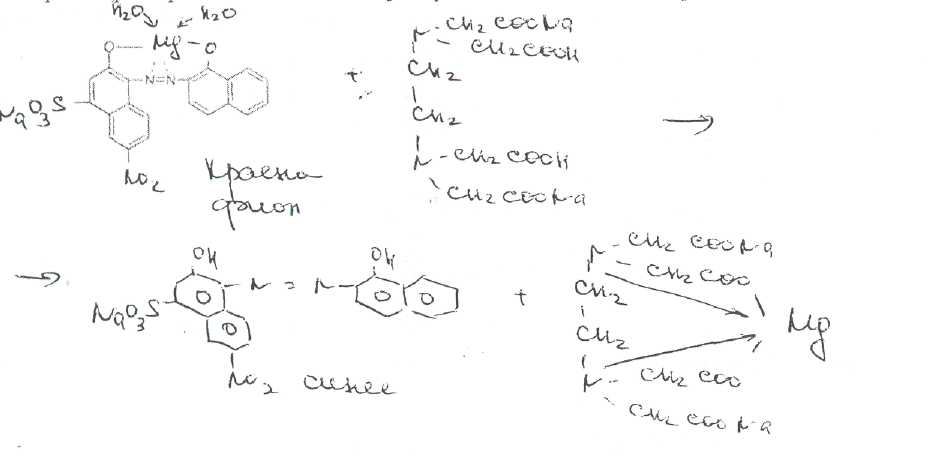 H2O H2O
O— Mg - O
N=N
NaO3S
NO2
N - CH2 COONa
- CH2 COOH
+
CH2
CH2
N - CH2 COOH
CH2 COONa
→
→
OH OH
NaO3S - N = N -
NO2 синее
+
N - CH2 COONa
- CH2 COO
CH2
CH2
Mg
N - CH2 COO
CH2 COO Na